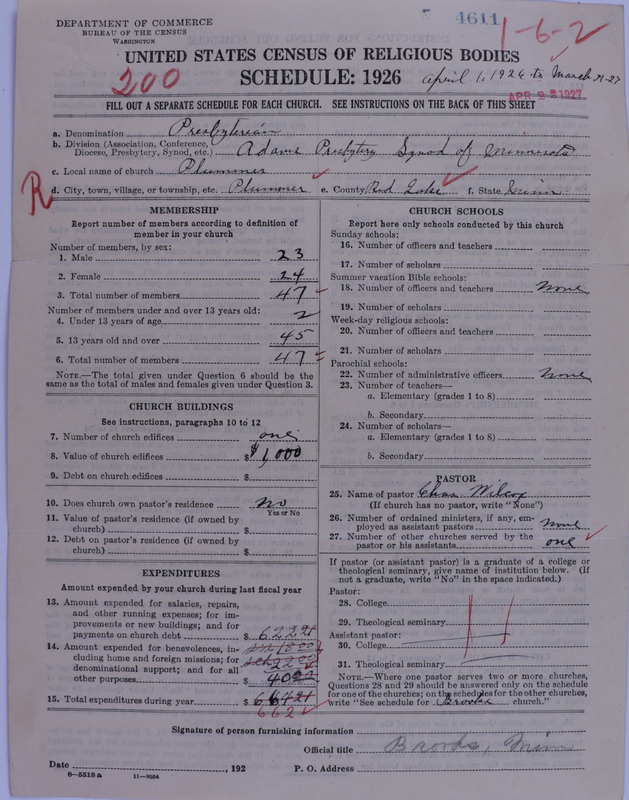 DEPARTMENT OF COMMERCE
BUREAU OF THE CENSUS
WASHINGTON
4611
1-6-2
UNITED STATES CENSUS OF RELIGIOUS BODIES
200
SCHEDULE: 1926
April 1, 1926 to March 31-27
APR 22 1927
FILL OUT A SEPARATE SCHEDULE FOR EACH CHURCH. SEE INSTRUCTIONS ON THE BACK OF THIS SHEET
a. Denomination Presbyterian
b. Division (Association, Conference,
Diocese, Presbytery, Synod, etc.) Adams Presbytery Synod of Minnesota
c. Local name of church Plummer
R
d. City, town, village, or township, etc. Plummer e. County Red Lake f. State Minn
MEMBERSHIP
Report number of members according to definition of
member in your church
Number of members, by sex:
1. Male 23
2. Female 24
3. Total number of members 47
Number of members under and over 13 years old:
4. Under 13 years of age 2
5. 13 years old and over 45
6. Total number of members 47
NOTE.—The total given under Question 6 should be
same as the total of males and females given under Question 3.
CHURCH BUILDINGS
See instructions, paragraphs 10 to 12
7. Number of church edifices one
8. Value of church edifices $1,000
9. Debt on church edifices $
10. Does church own pastor's residence No
Yes or No
11. Value of pastor's residence (if owned by
church) $
12. Debt on pastor's residence (if owned by
church) $
EXPENDITURES
Amount expended by your church during last fiscal year
13. Amount expended for salaries, repairs,
and other running expenses; for im-
provements or new buildings; and for
payments on church debt $ 622
14. Amount expended for benevolences, in-
cluding home and foreign missions; for
denominational support; and for all
other purposes $ 40
15. Total expenditures during year $
662
CHURCH SCHOOLS
Report here only schools conducted by this church
Sunday schools:
16. Number of officers and teachers
17. Number of scholars
Summer vacation Bible schools:
18. Number of officers and teachers None
19. Number of scholars
Week-day religious schools:
20. Number of officers and teachers
21. Number of scholars
Parochial schools:
22. Number of administrative officers None
23. Number of teachers—
a. Elementary (grades 1 to 8)
b. Secondary
24. Number of scholars—
a. Elementary (grades 1 to 8)
b. Secondary
PASTOR
25. Name of pastor Chas. Wilcox
(If church has no pastor, write "None")
26. Number of ordained ministers, if any, em-
ployed as assistant pastors None
27. Number of other churches served by the
pastor or his assistants one
If pastor (or assistant pastor) is a graduate of a college or
theological seminary, give name of institution below. (If
not a graduate, write "No" in the space indicated.)
Pastor:
28. College
29. Theological seminary
Assistant pastor:
30. College
31. Theological seminary
NOTE.—Where one pastor serves two or more churches,
Questions 28 and 29 should be answered only on the schedule
for one of the churches; on the schedules for the other churches,
write "See schedule for Brooks church."
Signature of person furnishing information
Official title
Date , 192
P. O. Address Brooks, Minn
8—5518 a 11—9054